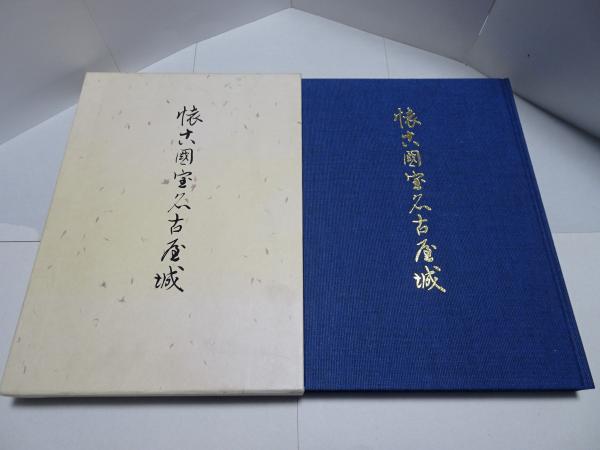 懐古國宝名古屋城
懐古國宝名古屋城